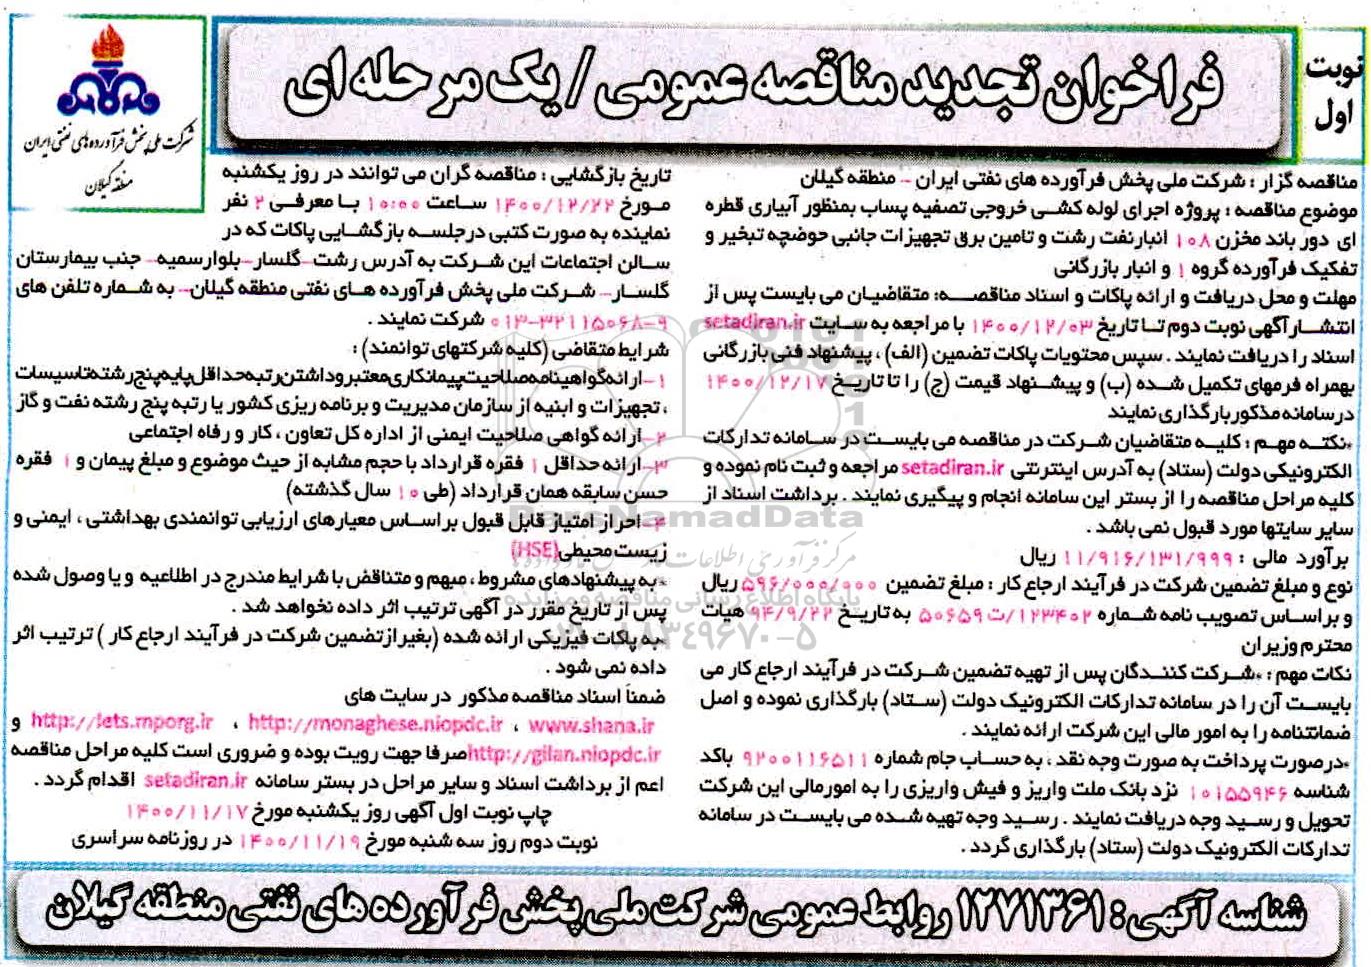 نوبت
اول
فراخوان تجدید مناقصه عمومی / یک مرحله ای
شرکت ملی پخش فرآورده های نفتی ایران
منطقه گیلان
مناقصه گزار : شرکت ملی پخش فرآورده های نفتی ایران - منطقه گیلان
موضوع مناقصه : پروژه اجرای لوله کشی خروجی تصفیه پساب بمنظور آبیاری قطره
ای دور باند مخزن ۱۰۸ انبارنفت رشت و تامین برق تجهیزات جانبی حوضچه تبخیر و
تفکیک فرآورده گروه ۱ و انبار بازرگانی
مهلت و محل دریافت و ارائه پاکات و اسناد مناقصه: متقاضیان می بایست پس از
انتشار آگهی نوبت دوم تا تاریخ ۱۴۰۰/۱۲/۰۳ با مراجعه به سایت setadiran.ir
اسناد را دریافت نمایند . سپس محتویات پاکات تضمین (الف) ، پیشنهاد فنی بازرگانی
بهمراه فرمهای تکمیل شده (ب) و پیشنهاد قیمت (ج) را تا تاریخ ۱۴۰۰/۱۲/۱۷
در سامانه مذکور بارگذاری نمایند
*نکته مهم : کلیه متقاضیان شرکت در مناقصه می بایست در سامانه تدارکات
الکترونیکی دولت (ستاد) به آدرس اینترنتی setadiran.ir مراجعه و ثبت نام نموده و
کلیه مراحل مناقصه را از بستر این سامانه انجام و پیگیری نمایند . برداشت اسناد از
سایر سایتها مورد قبول نمی باشد .
برآورد مالی : ۱۱/۹۱۶/۱۳۱/۹۹۹ ریال
نوع و مبلغ تضمین شرکت در فرآیند ارجاع کار : مبلغ تضمین ۵۹۶/۰۰۰/۰۰۰ ریال
و بر اساس تصویب نامه شماره ۱۲۳۴۰۲/ت ۵۰۶۵۹ به تاریخ ۹۴/۹/۲۲ هیات
محترم وزیران
نکات مهم : *شرکت کنندگان پس از تهیه تضمین شرکت در فرآیند ارجاع کار می
بایست آن را در سامانه تدارکات الکترونیک دولت (ستاد) بارگذاری نموده و اصل
ضمانتنامه را به امور مالی این شرکت ارائه نمایند .
*در صورت پرداخت به صورت وجه نقد ، به حساب جام شماره ۹۲۰۰۱۱۶۵۱۱ باکد
شناسه ۱۰۱۵۵۹۴۶ نزد بانک ملت واریز و فیش واریزی را به امور مالی این شرکت
تحویل و رسید وجه دریافت نمایند . رسید وجه تهیه شده می بایست در سامانه
تدارکات الکترونیک دولت (ستاد) بارگذاری گردد .
تاریخ بازگشایی : مناقصه گران می توانند در روز یکشنبه
مورخ ۱۴۰۰/۱۲/۲۲ ساعت ۱۰:۰۰ با معرفی ۲ نفر
نماینده به صورت کتبی در جلسه بازگشایی پاکات که در
سالن اجتماعات این شرکت به آدرس رشت-گلسار-بلوار سمیه- جنب بیمارستان
گلسار- شرکت ملی پخش فرآورده های نفتی منطقه گیلان- به شماره تلفن های
۹-۰۱۳-۳۲۱۱۵۰۶۸ شرکت نمایند .
شرایط متقاضی (کلیه شرکتهای توانمند) :
۱-ارائه گواهینامه صلاحیت پیمانکاری معتبر و داشتن رتبه حداقل پایه پنج رشته تاسیسات
، تجهیزات و ابنیه از سازمان مدیریت و برنامه ریزی کشور یا رتبه پنج رشته نفت و گاز
۲-ارائه گواهی صلاحیت ایمنی از اداره کل تعاون ، کار و رفاه اجتماعی
۳-ارائه حداقل ۱ فقره قرارداد با حجم مشابه از حیث موضوع و مبلغ پیمان و ۱ فقره
حسن سابقه همان قرارداد (طی ۱۰ سال گذشته)
۴-احراز امتیاز قابل قبول بر اساس معیارهای ارزیابی توانمندی بهداشتی ، ایمنی و
زیست محیطی(HSE)
*به پیشنهادهای مشروط ، مبهم و متناقض با شرایط مندرج در اطلاعیه و یا وصول شده
پس از تاریخ مقرر در آگهی ترتیب اثر داده نخواهد شد .
*به پاکات فیزیکی ارائه شده (بغیر از تضمین شرکت در فرآیند ارجاع کار ) ترتیب اثر
داده نمی شود .
ضمناً اسناد مناقصه مذکور در سایت های
www.shana.ir ، http://monaghese.niopdc.ir ، http://iets.mporg.ir و
http://gilan.niopdc.ir صرفا جهت رویت بوده و ضروری است کلیه مراحل مناقصه
اعم از برداشت اسناد و سایر مراحل در بستر سامانه setadiran.ir اقدام گردد .
چاپ نوبت اول آگهی روز یکشنبه مورخ ۱۴۰۰/۱۱/۱۷
نوبت دوم روز سه شنبه مورخ ۱۴۰۰/۱۱/۱۹ در روزنامه سراسری
شناسه آگهی : ۱۲۷۱۳۶۱ روابط عمومی شرکت ملی پخش فرآورده های نفتی منطقه گیلان
ParsNamadData
پایگاه اطلاع رسانی مناقصه و مزایده